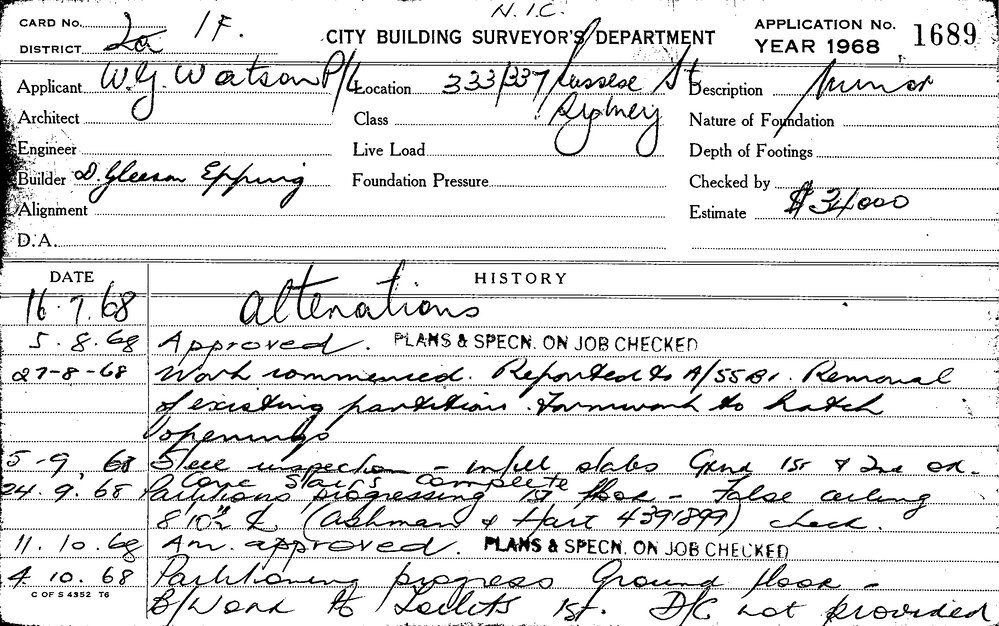 N.I.C.
CARD No.
DISTRICT 2a 1F.
CITY BUILDING SURVEYOR'S DEPARTMENT
APPLICATION No. 1689
YEAR 1968
Applicant W.G. Watson P/L Location 333/337 Sussex St Sydney Description Minor
Architect Class Nature of Foundation
Engineer Live Load Depth of Footings
Builder D. Gleeson Epping Foundation Pressure Checked by
Alignment Estimate $34000
D.A.
DATE HISTORY
16.7.68 Alterations
5.8.68 Approved. PLANS & SPECN. ON JOB CHECKED
27-8-68 Work commenced. Reported to A/SSBI. Removal
of existing partition. Formwork to hatch
openings
5-9.68 Steel inspection - infill slabs Grnd 1st & 2nd OK.
Conc Stairs Complete
24.9.68 Partitions progressing 1st floor - False ceiling
8'10½" (Ashman & Hart 4391899) check.
11.10.68 Am. approved. PLANS & SPECN. ON JOB CHECKED
4.10.68 Partitioning progress Ground floor -
B/Work to Toilets 1st. D/C not provided
C OF S 4352 T6